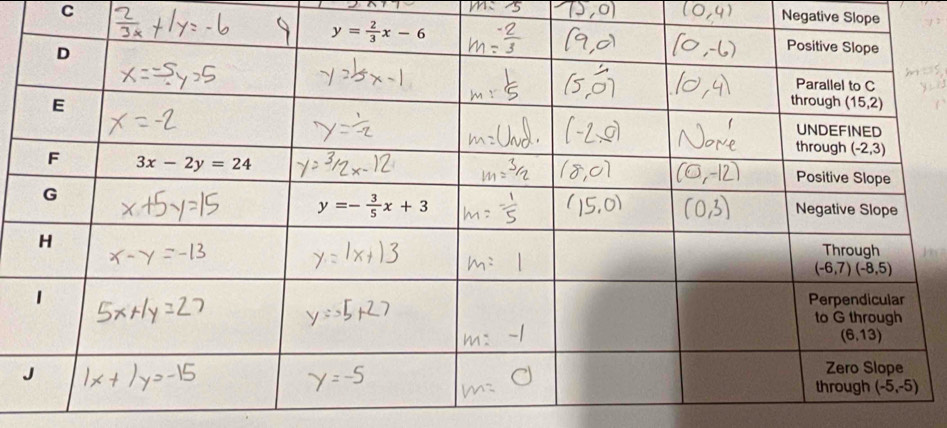 C m=5 (5,0) (0,4) Negative Slope
2/3x + 1y = -6 y = 2/3x − 6 m = -2/3 (9,0) (0,-6) Positive Slope
D x = -5y = 5 y = 1/5x - 1 m = 1/5 (5,0) (0,4) Parallel to C
through (15,2)
E x = -2 m = Und. (-2,0) None UNDEFINED
through (-2,3)
F 3x − 2y = 24 y = 3/2x - 12 m = 3/2 (8,0) (0,-12) Positive Slope
G x + 5y = 15 y = −3/5x + 3 m = -1/5 (15,0) (0,3) Negative Slope
H x - y = -13 y = 1x + 13 m = 1 Through
(-6,7) (-8,5)
I 5x + 1y = 27 y = -5 + 27 m = -1 Perpendicular
to G through
(6,13)
J 1x + 1y = -15 y = -5 m = 0 Zero Slope
through (-5,-5)